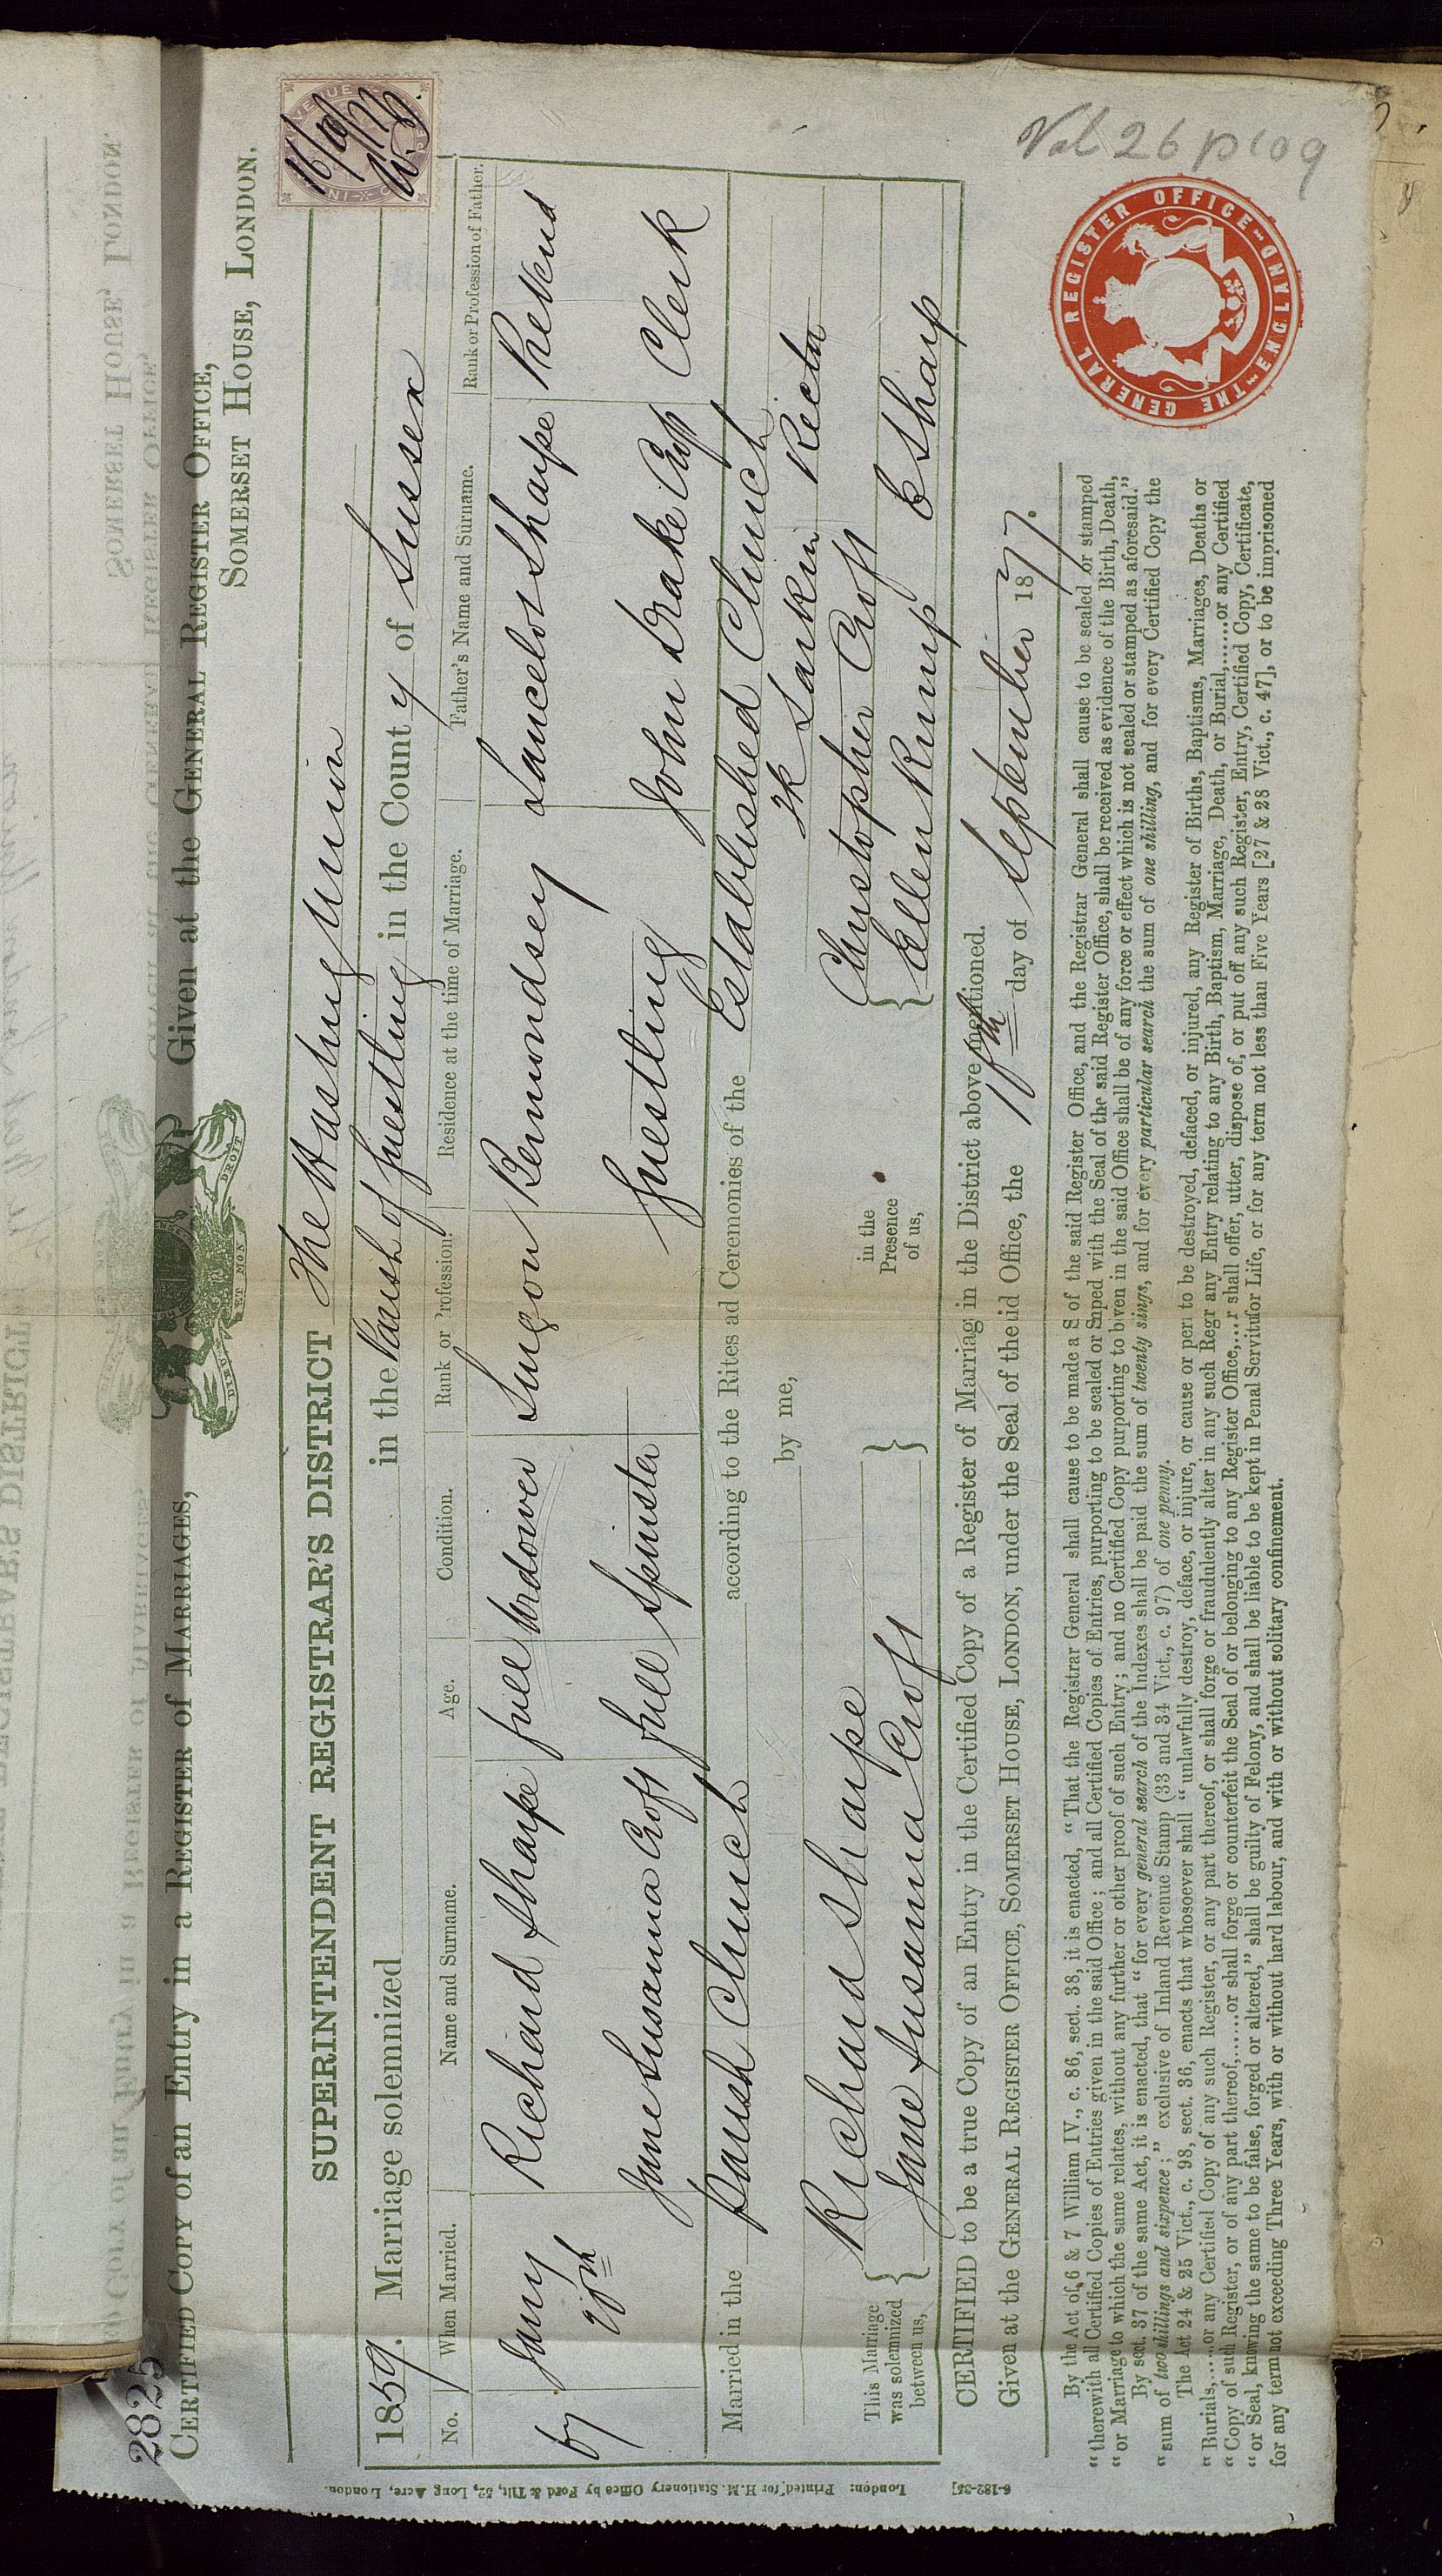 2825
CERTIFIED COPY of an Entry in a REGISTER of MARRIAGES, Given at the GENERAL REGISTER OFFICE,
SOMERSET HOUSE, LONDON.
DIEU ET MON DROIT
16/10/77
Vol 26 p 109
SUPERINTENDENT REGISTRAR'S DISTRICT The Hastings Union
1859. Marriage solemnized in the Parish of Guestling in the County of Sussex
No. When Married. Name and Surname. Age. Condition. Rank or Profession. Residence at the time of Marriage. Father's Name and Surname. Rank or Profession of Father.
67 Jany 20th Richard Sharpe full Widower Surgeon Bermondsey Lancelot Sharpe Reverend
Jane Susanna Croft full Spinster Guestling John Drake Croft Clerk
Married in the Parish Church according to the Rites and Ceremonies of the Established Church
by me, Larkin Rector
This Marriage was solemnized between us, Richard Sharpe in the Presence of us, Christopher Croft
Jane Susanna Croft Ellen Kemp E Sharp
CERTIFIED to be a true Copy of an Entry in the Certified Copy of a Register of Marriages in the District above mentioned.
Given at the GENERAL REGISTER OFFICE, SOMERSET HOUSE, LONDON, under the Seal of the said Office, the 18th day of September 1877.
By the Act of 6 & 7 William IV., c. 86, sect. 38, it is enacted, "That the Registrar General shall cause to be made a Seal of the said Register Office, and the Registrar General shall cause to be sealed or stamped
"therewith all Certified Copies of Entries given in the said Office; and all Certified Copies of Entries, purporting to be sealed or stamped with the Seal of the said Register Office, shall be received as evidence of the Birth, Death,
"or Marriage to which the same relates, without any further or other proof of such Entry; and no Certified Copy purporting to be given in the said Office shall be of any force or effect which is not sealed or stamped as aforesaid."
By sect. 37 of the same Act, it is enacted, that "for every general search of the Indexes shall be paid the sum of twenty shillings, and for every particular search the sum of one shilling, and for every Certified Copy the
"sum of two shillings and sixpence;" exclusive of Inland Revenue Stamp (33 and 34 Vict., c. 97) of one penny.
The Act 24 & 25 Vict., c. 98, sect. 36, enacts that whosoever shall "unlawfully destroy, deface, or injure, or cause or permit to be destroyed, defaced, or injured, any Register of Births, Baptisms, Marriages, Deaths or
"Burials,......or any Certified Copy of any such Register, or any part thereof, or shall forge or fraudulently alter in any such Register any Entry relating to any Birth, Baptism, Marriage, Death, or Burial,......or any Certified
"Copy of such Register, or of any part thereof,......or shall forge or counterfeit the Seal of or belonging to any Register Office,....or shall offer, utter, dispose of, or put off any such Register, Entry, Certified Copy, Certificate,
"or Seal, knowing the same to be false, forged or altered," shall be guilty of Felony, and shall be liable to be kept in Penal Servitude for Life, or for any term not less than Five Years [27 & 28 Vict., c. 47], or to be imprisoned
for any term not exceeding Three Years, with or without hard labour, and with or without solitary confinement.
THE GENERAL REGISTER OFFICE ENGLAND
London: Printed for H. M. Stationery Office by Ford & Tilt, 52, Long Acre, London.